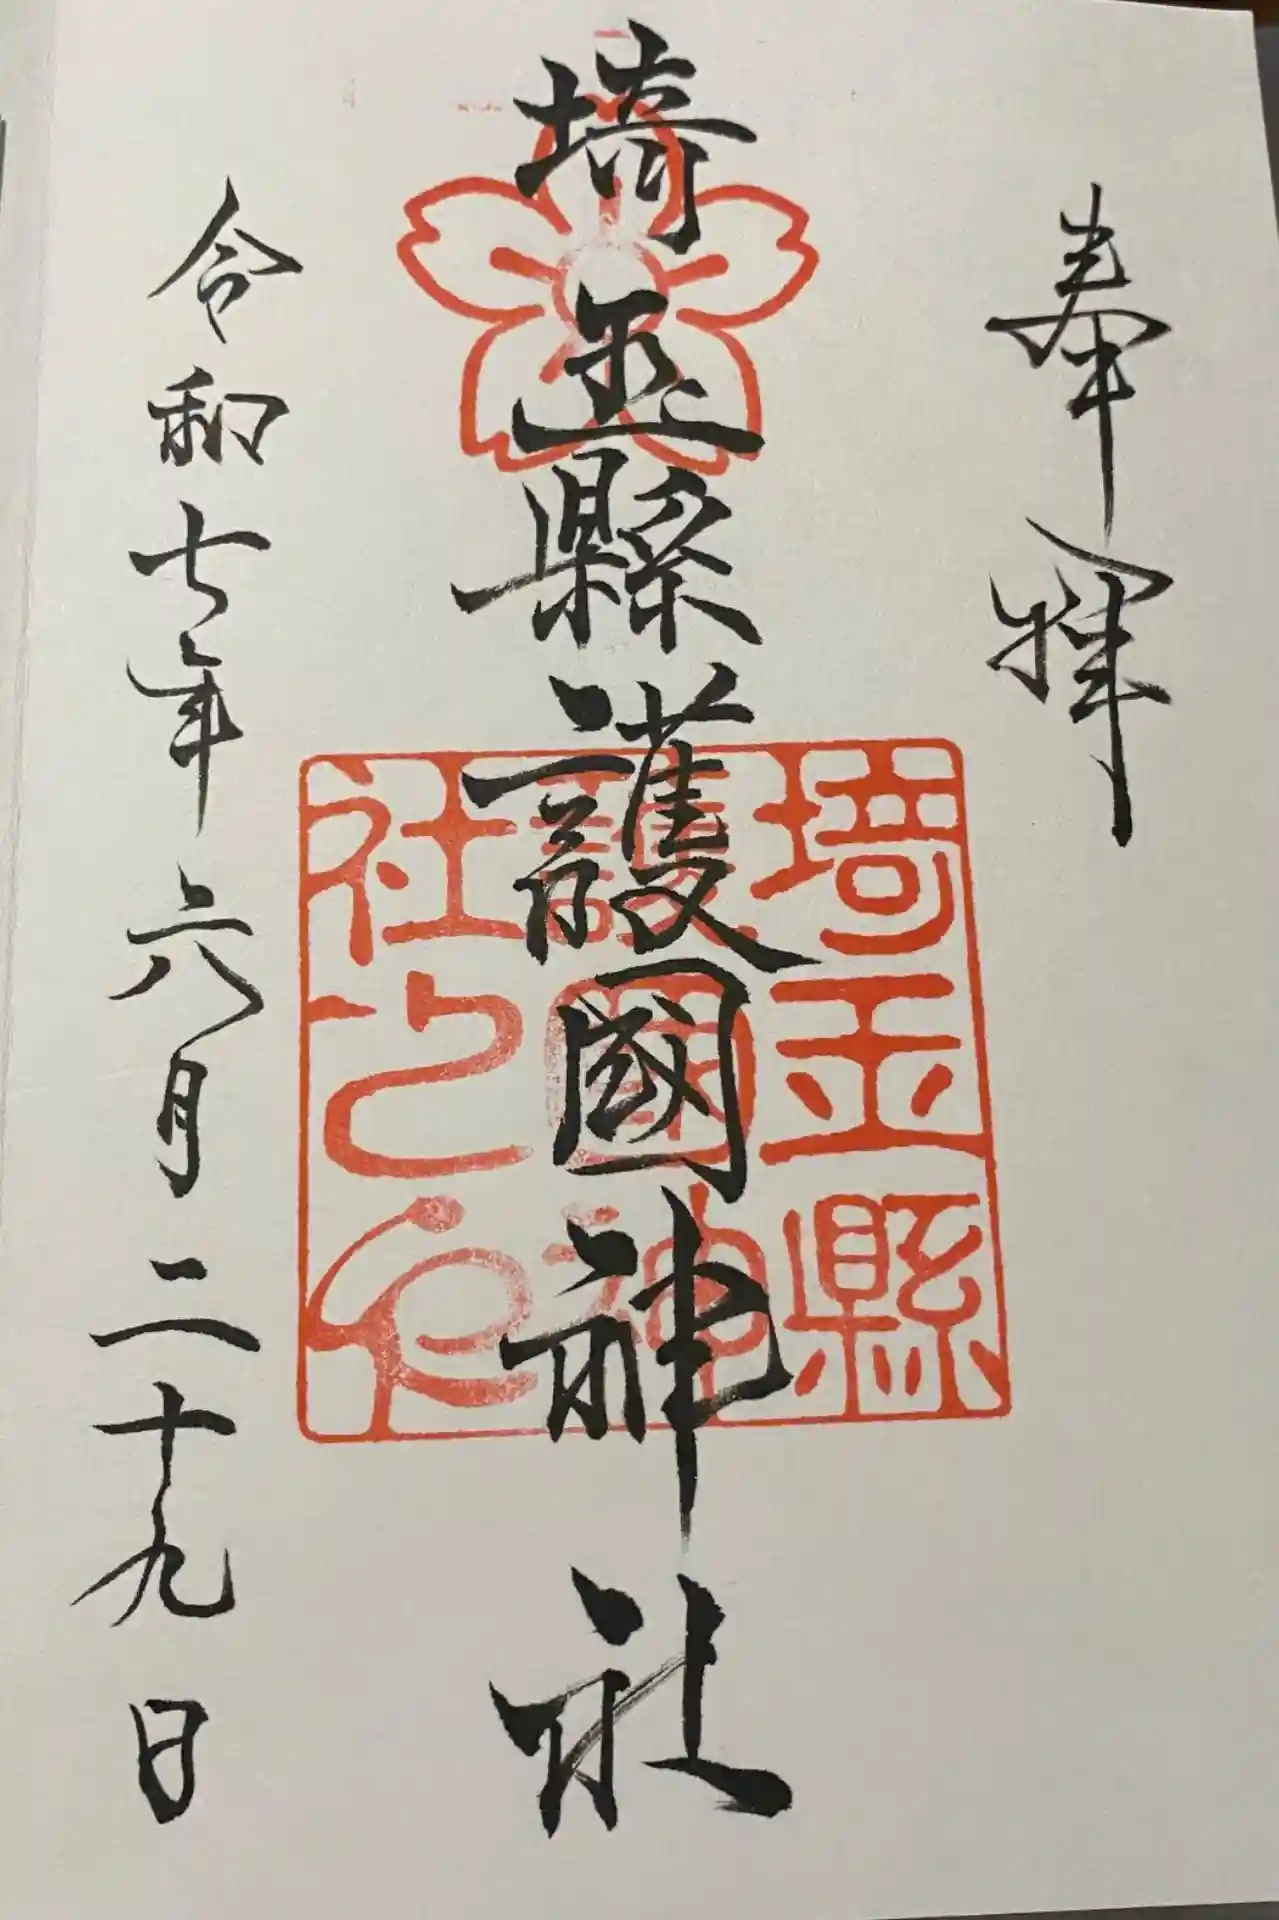 奉拝
埼玉縣護國神社
埼玉縣
護國神
社之印
令和七年六月二十九日